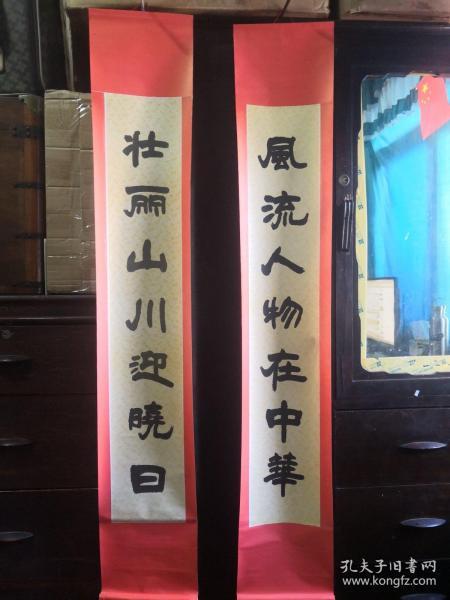 風流人物在中華
壮丽山川迎曉日
孔夫子旧书网
www.kongfz.com